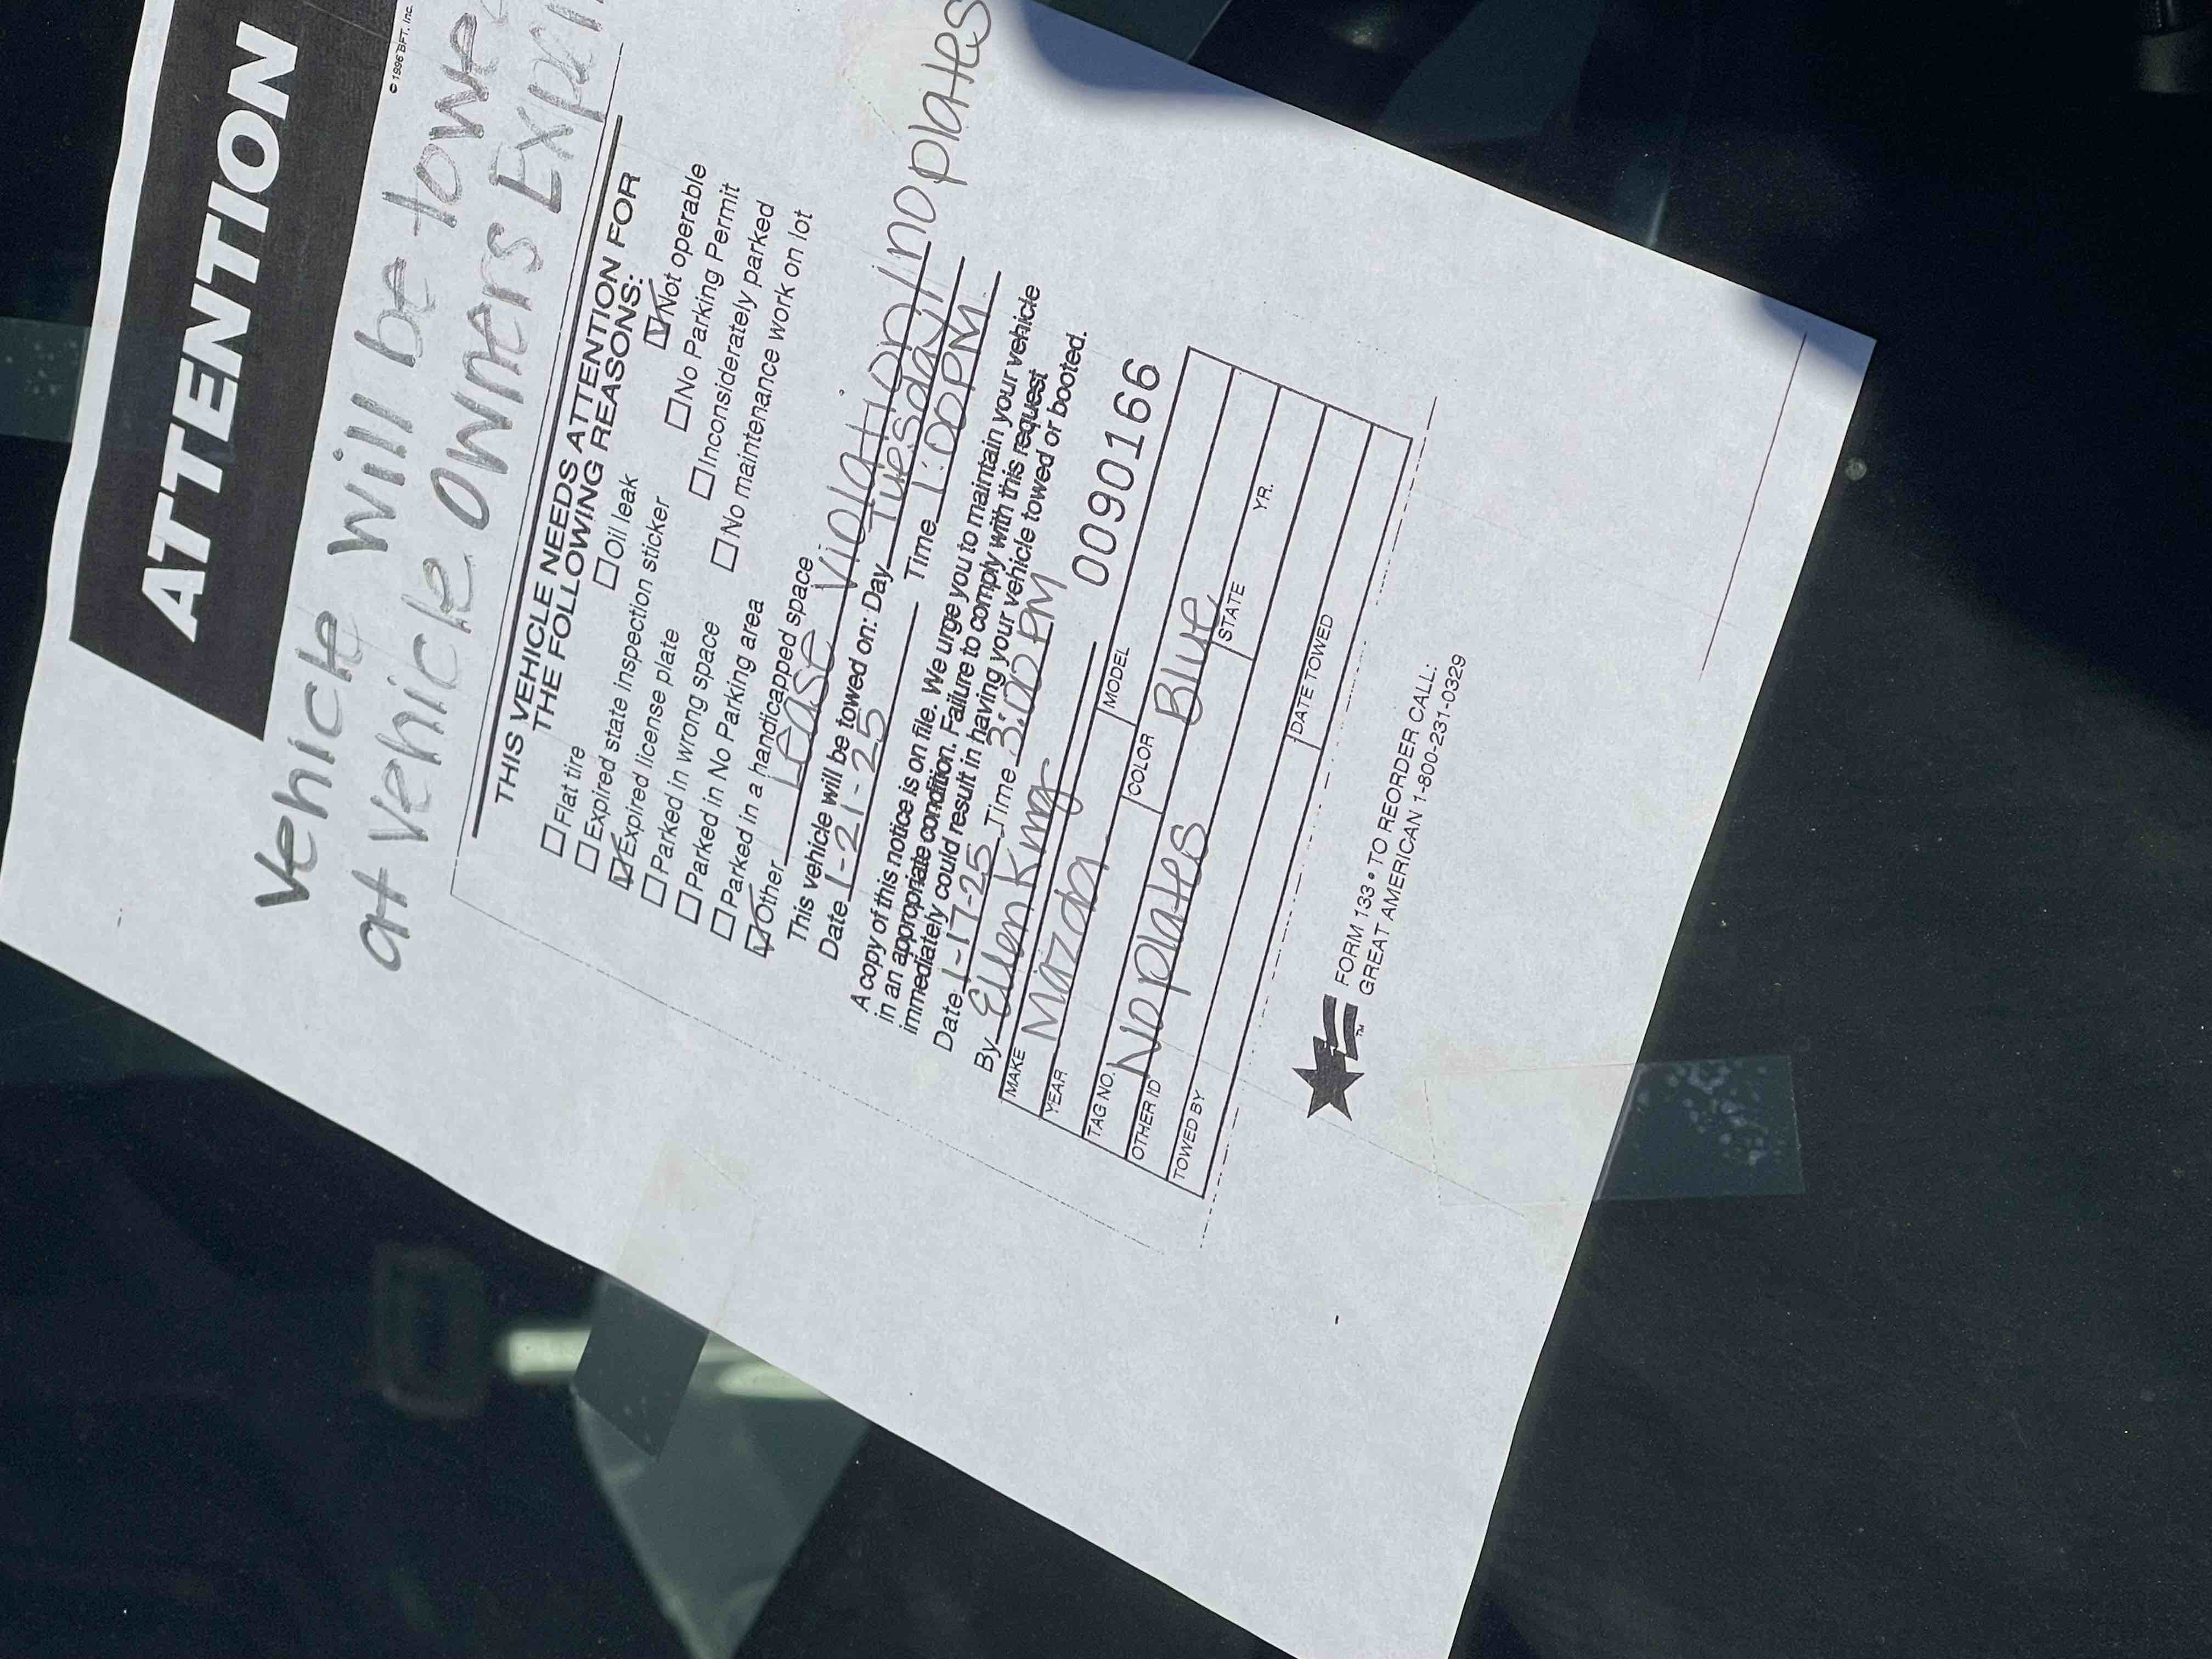 ATTENTION
© 1996 BFT. Inc.
Vehicle will be towe
at vehicle owners Expen
THIS VEHICLE NEEDS ATTENTION FOR
THE FOLLOWING REASONS:
☐ Flat tire ☐ Oil leak ☑ Not operable
☐ Expired state inspection sticker ☐ No Parking Permit
☑ Expired license plate ☐ Inconsiderately parked
☐ Parked in wrong space ☐ No maintenance work on lot
☐ Parked in No Parking area
☐ Parked in a handicapped space
☑ Other Lease Violation / no plates
This vehicle will be towed on: Day Tuesday
Date 1-21-25 Time 1:00 PM
A copy of this notice is on file. We urge you to maintain your vehicle
in an appropriate condition. Failure to comply with this request
immediately could result in having your vehicle towed or booted.
Date 1-17-25 Time 3:00 PM
By Ellen King 0090166
MAKE Mazda MODEL
YEAR COLOR Blue
TAG NO. No plates STATE YR.
OTHER ID
TOWED BY DATE TOWED
FORM 133 • TO REORDER CALL:
GREAT AMERICAN 1-800-231-0329